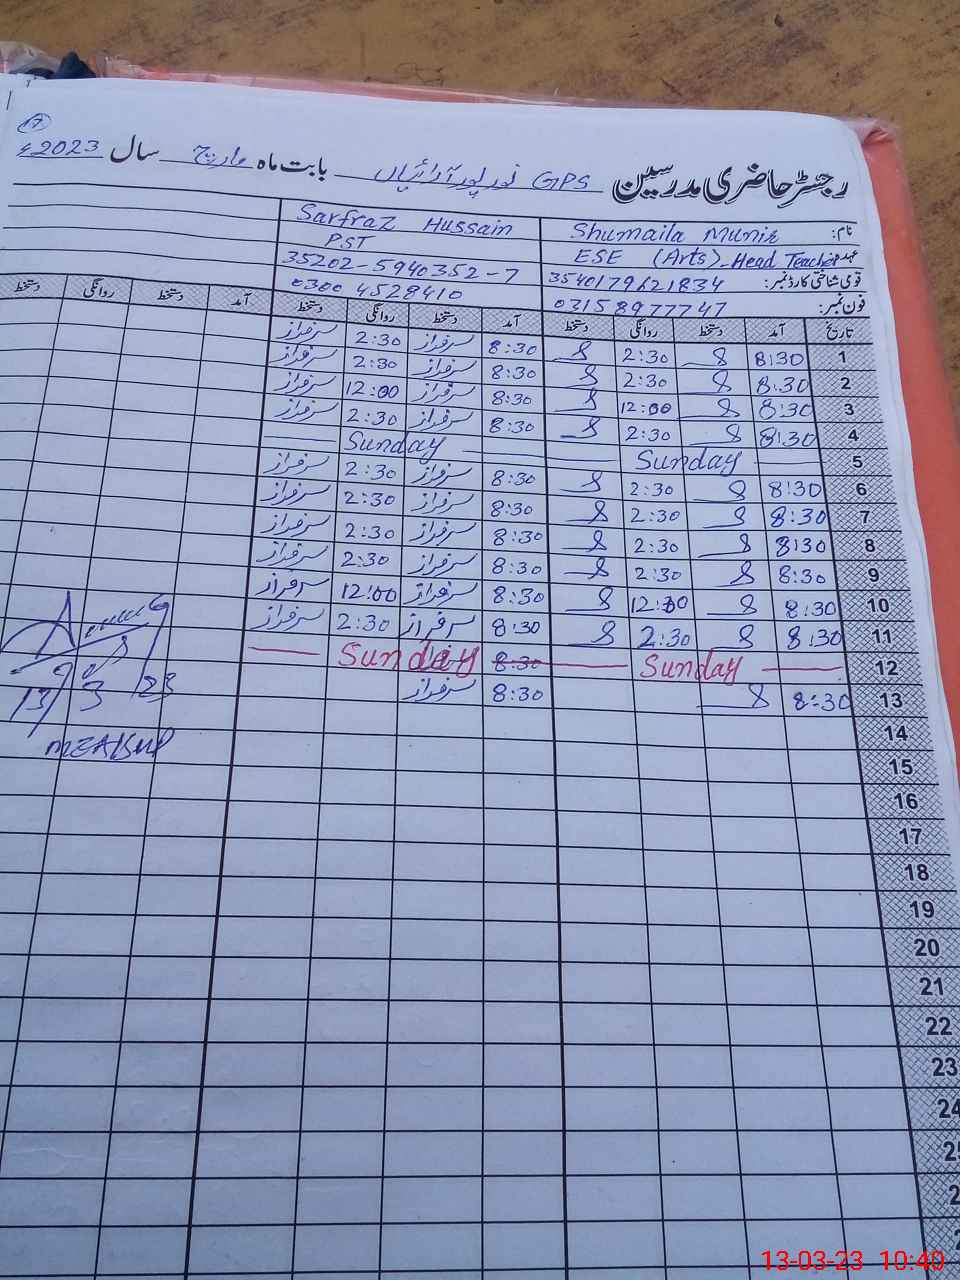 17
رجسٹر حاضری مدرسین GPS نورپور آرائیاں بابت ماہ مارچ سال 2023ء
نام: Shumaila Munir Sarfraz Hussain
عہدہ: ESE (Arts)-Head Teacher PST
قومی شناختی کارڈ نمبر: 3540179621834 35202-5940352-7
فون نمبر: 03158977747 0300 4528410
تاریخ آمد دستخط روانگی دستخط آمد دستخط روانگی دستخط آمد دستخط روانگی دستخط
1 8:30 2:30 8:30 سرفراز 2:30 سرفراز
2 8:30 2:30 8:30 سرفراز 2:30 سرفراز
3 8:30 12:00 8:30 سرفراز 12:00 سرفراز
4 8:30 2:30 8:30 سرفراز 2:30 سرفراز
5 Sunday Sunday
6 8:30 2:30 8:30 سرفراز 2:30 سرفراز
7 8:30 2:30 8:30 سرفراز 2:30 سرفراز
8 8:30 2:30 8:30 سرفراز 2:30 سرفراز
9 8:30 2:30 8:30 سرفراز 2:30 سرفراز
10 8:30 12:30 8:30 سرفراز 12:00 سرفراز
11 8:30 2:30 8:30 سرفراز 2:30 سرفراز
12 Sunday 8:30 Sunday
13 8:30 8:30 سرفراز
13/3/23
14
15
16
17
18
19
20
21
22
23
24
13-03-23 10:40